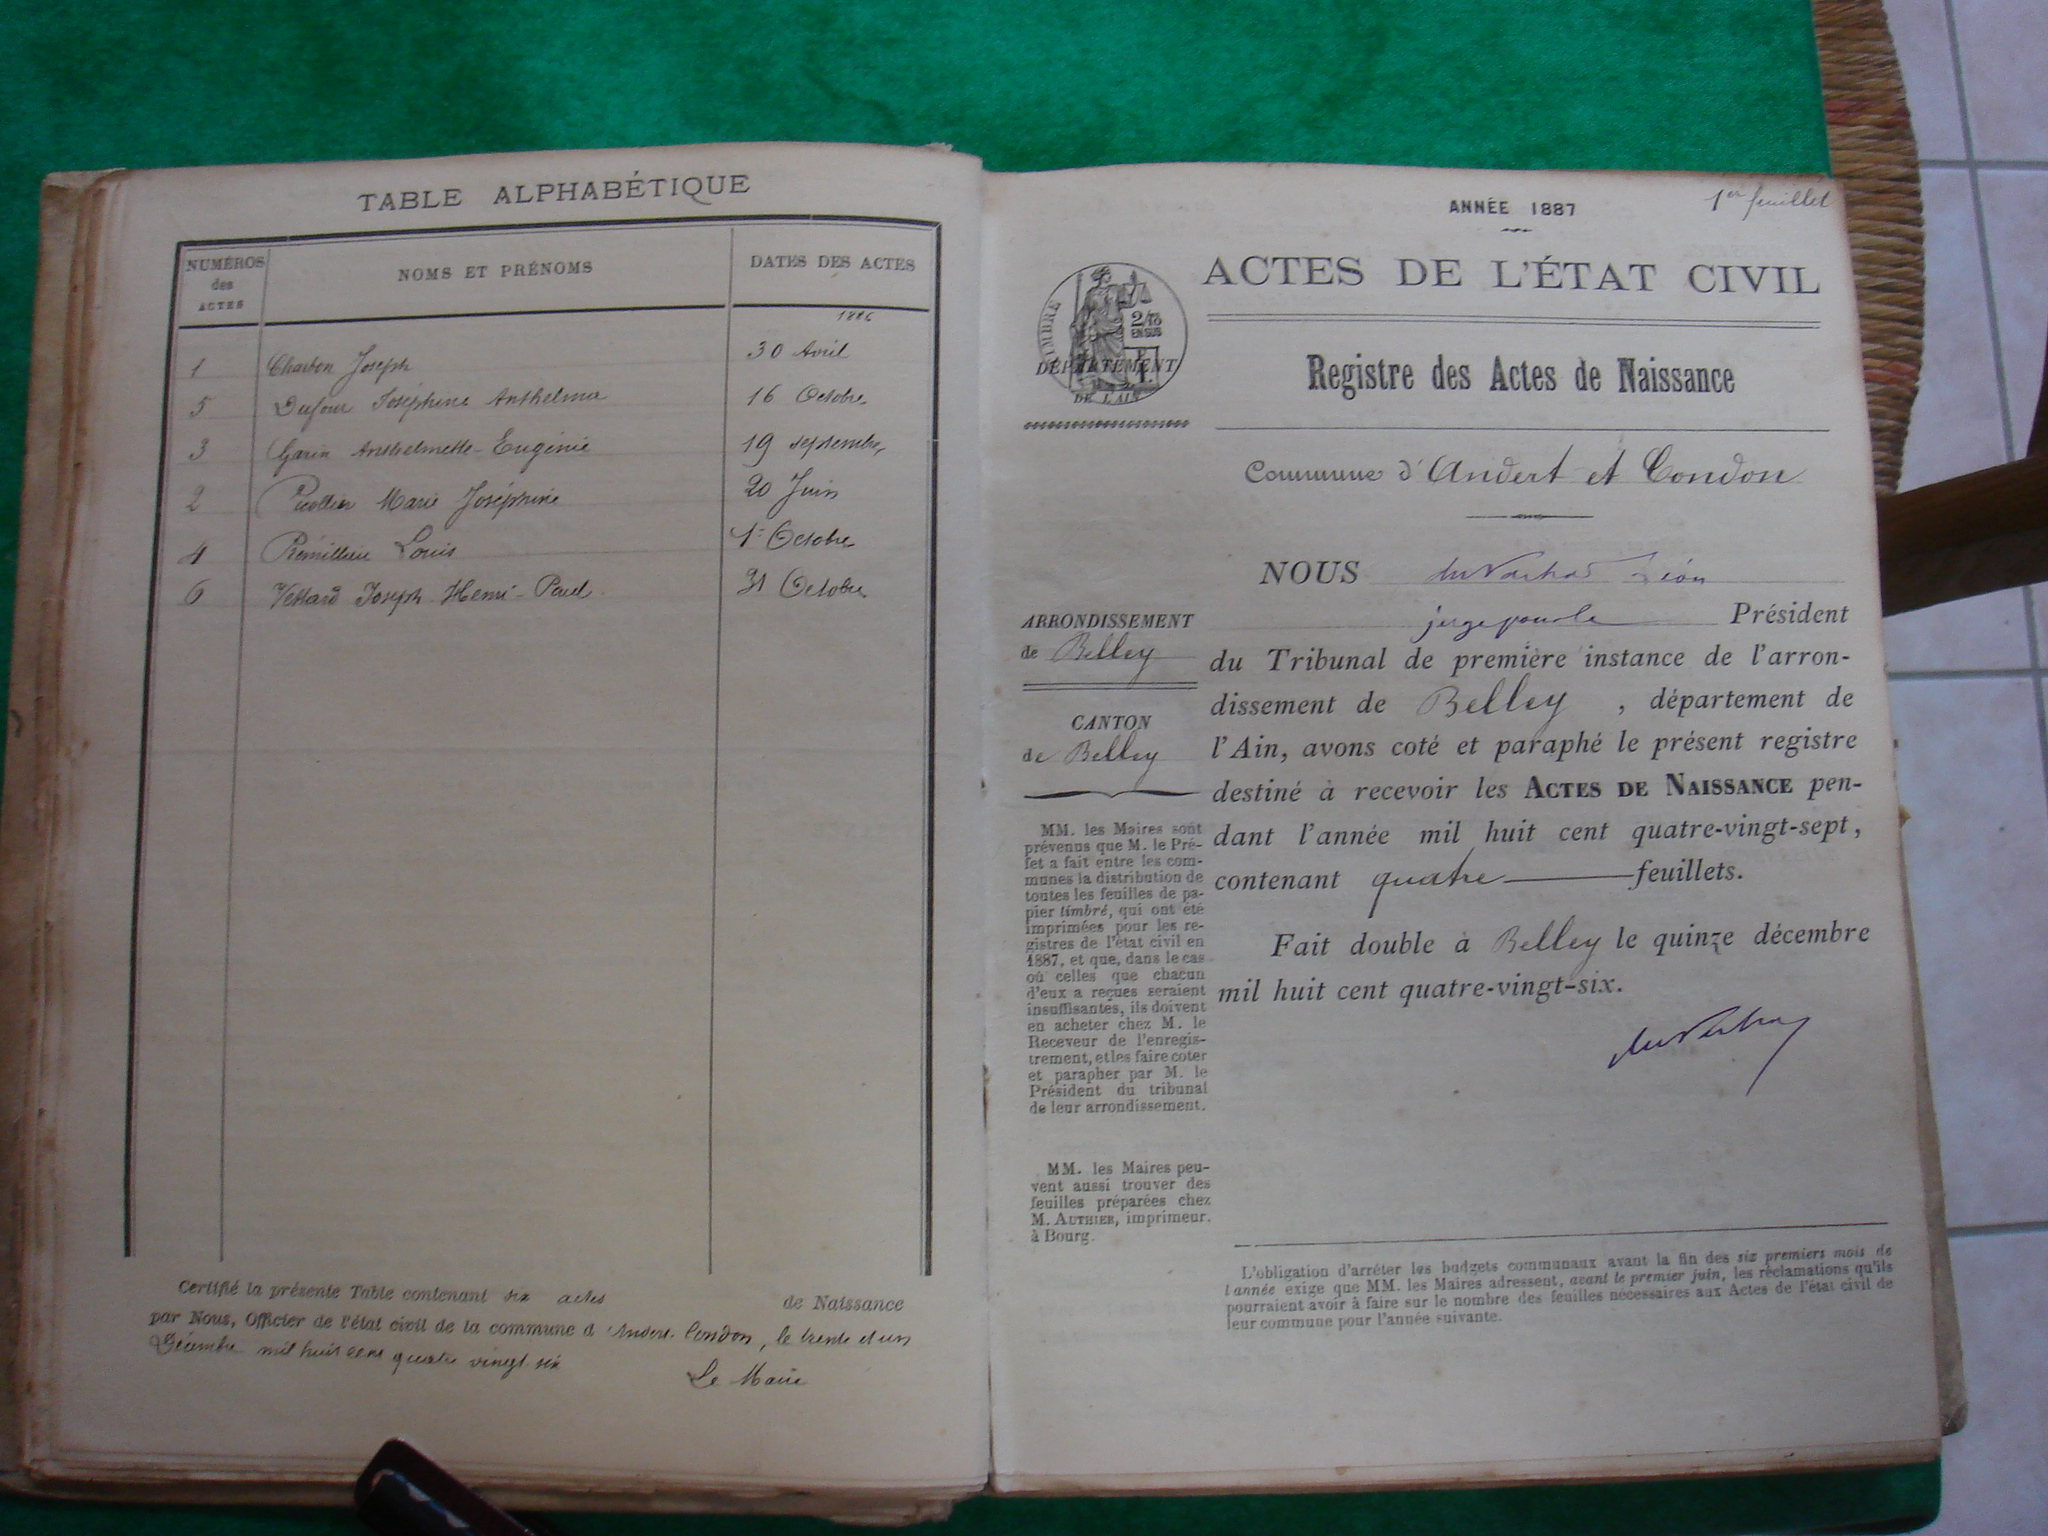 TABLE ALPHABÉTIQUE
NUMÉROS
des
ACTES
NOMS ET PRÉNOMS
DATES DES ACTES
1886
1 Charbon Joseph 30 Avril
5 Dufour Joséphine Anthelmie 16 Octobre
3 Garin Anthelmette-Eugénie 19 septembre
2 Marie Joséphine 20 Juin
4 Louis 1er Octobre
6 Joseph Henri-Paul 31 Octobre
Certifié la présente Table contenant six actes de Naissance
par Nous, Officier de l'état civil de la commune d'Andert-Condon, le trente et un
Décembre mil huit cent quatre vingt-six
Le Maire
1er feuillet
ANNÉE 1887
ACTES DE L'ÉTAT CIVIL
TIMBRE
2/10
EN SUS
DÉPARTEMENT
DE L'AIN
Registre des Actes de Naissance
Commune d'Andert et Condon
NOUS Léon
juge pour le Président
du Tribunal de première instance de l'arron-
dissement de Belley, département de
l'Ain, avons coté et paraphé le présent registre
destiné à recevoir les ACTES DE NAISSANCE pen-
dant l'année mil huit cent quatre-vingt-sept,
contenant quatre feuillets.
Fait double à Belley le quinze décembre
mil huit cent quatre-vingt-six.
ARRONDISSEMENT
de Belley
CANTON
de Belley
MM. les Maires sont
prévenus que M. le Pré-
fet a fait entre les com-
munes la distribution de
toutes les feuilles de pa-
pier timbré, qui ont été
imprimées pour les re-
gistres de l'état civil en
1887, et que, dans le cas
où celles que chacun
d'eux a reçues seraient
insuffisantes, ils doivent
en acheter chez M. le
Receveur de l'enregis-
trement, et les faire coter
et parapher par M. le
Président du tribunal
de leur arrondissement.
MM. les Maires peu-
vent aussi trouver des
feuilles préparées chez
M. AUTHIER, imprimeur,
à Bourg.
L'obligation d'arrêter les budgets communaux avant la fin des six premiers mois de
l'année exige que MM. les Maires adressent, avant le premier juin, les réclamations qu'ils
pourraient avoir à faire sur le nombre des feuilles nécessaires aux Actes de l'état civil de
leur commune pour l'année suivante.